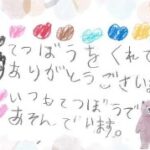 てつぼうをくれて
ありがとうございま
いつもてつぼうで
あそんでいます。